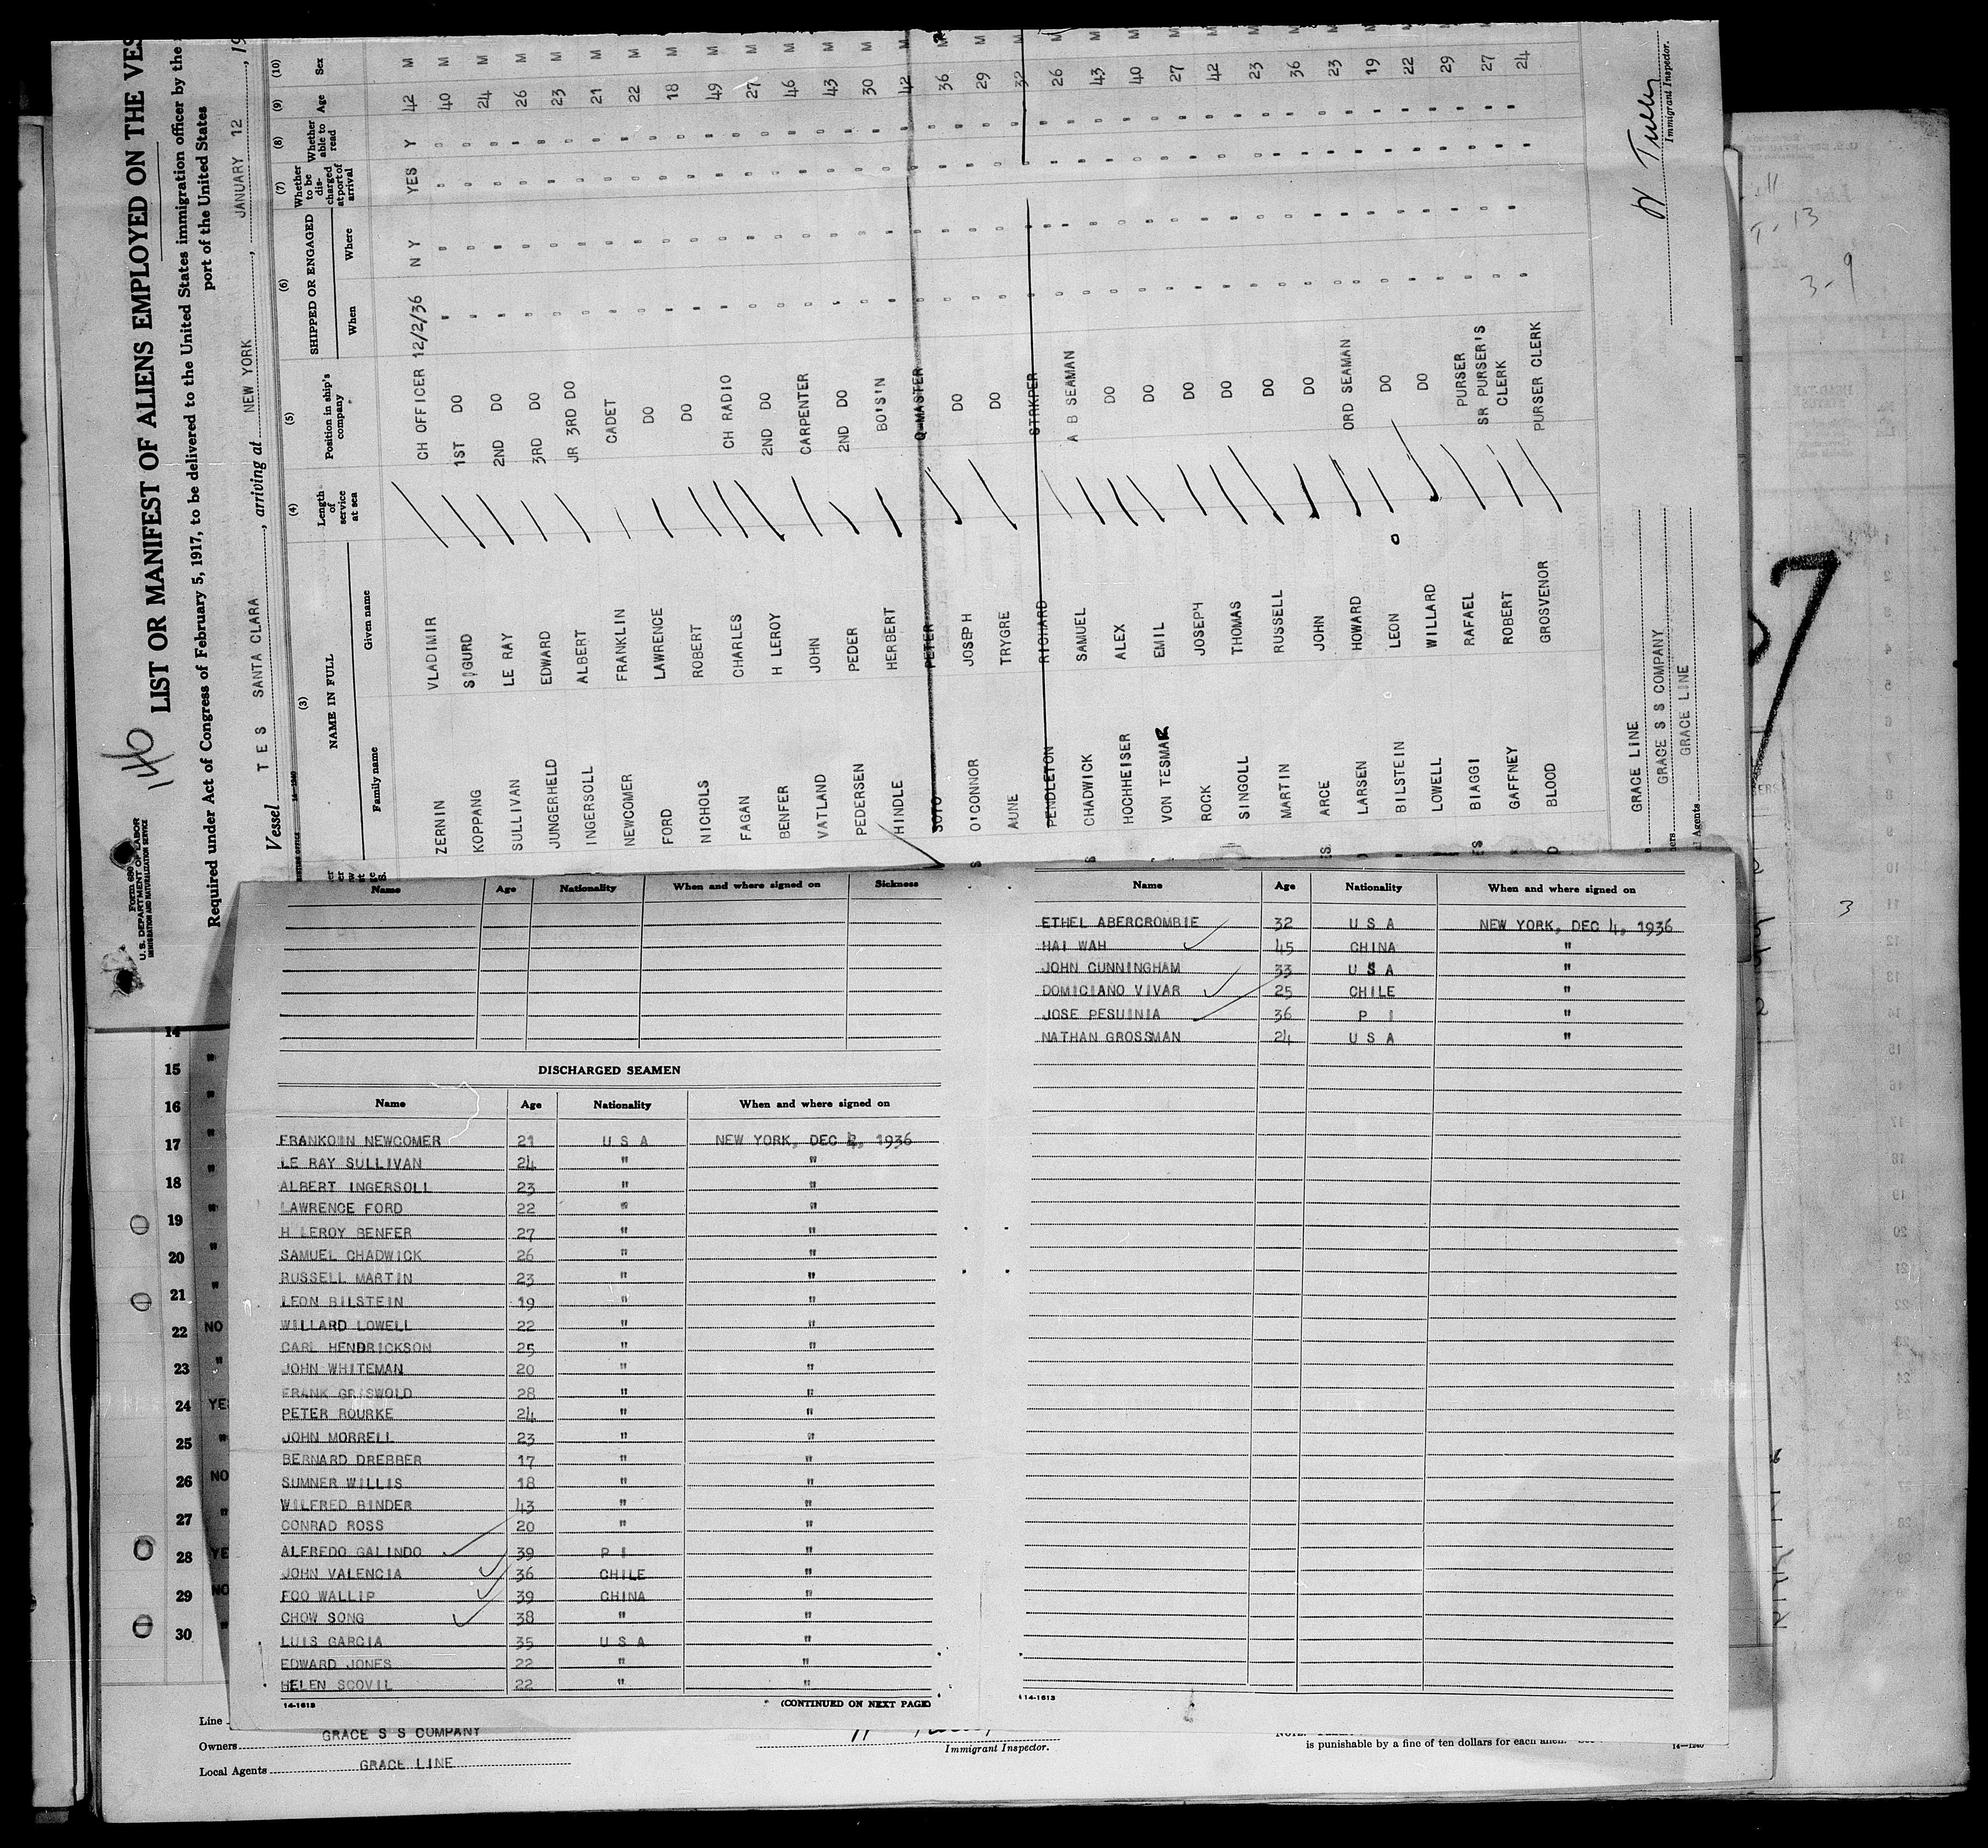 146
LIST OR MANIFEST OF ALIENS EMPLOYED ON THE VES
Required under Act of Congress of February 5, 1917, to be delivered to the United States immigration officer by the
port of the United States
Form 680
U. S. DEPARTMENT OF LABOR
IMMIGRATION AND NATURALIZATION SERVICE
Vessel T E S SANTA CLARA, arriving at NEW YORK, JANUARY 12, 19
14—1240
(3) (4) (5) (6) (7) (8) (9) (10)
NAME IN FULL
Family name Given name
Length of service at sea
Position in ship's company
SHIPPED OR ENGAGED
When Where
Whether to be discharged at port of arrival
Whether able to read
Age
Sex
ZERNIN VLADIMIR CH OFFICER 12/2/36 N Y YES Y 42 M
KOPPANG SIGURD 1ST DO " " " " 40 M
SULLIVAN LE RAY 2ND DO " " " " 24 M
JUNGERHELD EDWARD 3RD DO " " " " 26 M
INGERSOLL ALBERT JR 3RD DO " " " " 23 M
NEWCOMER FRANKLIN CADET " " " " 21 M
FORD LAWRENCE DO " " " " 22 M
NICHOLS ROBERT DO " " " " 18 M
FAGAN CHARLES CH RADIO " " " " 49 M
BENFER H LEROY 2ND DO " " " " 27 M
VATLAND JOHN CARPENTER " " " " 46 M
PEDERSEN PEDER 2ND DO " " " " 43 M
HINDLE HERBERT BO'S'N " " " " 30 M
SOTO PETER Q-MASTER " " " " 42 M
O'CONNOR JOSEPH DO " " " " 36 M
AUNE TRYGRE DO " " " " 29 M
PENDLETON RICHARD STRKPER " " " " 32 M
CHADWICK SAMUEL A B SEAMAN " " " " 26 M
HOCHHEISER ALEX DO " " " " 43 M
VON TESMAR EMIL DO " " " " 40 M
ROCK JOSEPH DO " " " " 27 M
SINGOLL THOMAS DO " " " " 42 M
MARTIN RUSSELL DO " " " " 23 M
ARCE JOHN DO " " " " 36 M
LARSEN HOWARD ORD SEAMAN " " " " 23 M
BILSTEIN LEON DO " " " " 19 M
LOWELL WILLARD DO " " " " 22 M
BIAGGI RAFAEL PURSER " " " " 29 M
GAFFNEY ROBERT SR PURSER'S CLERK " " " " 27 M
BLOOD GROSVENOR PURSER CLERK " " " " 24 M
GRACE LINE
GRACE S S COMPANY
Agents GRACE LINE
Immigrant Inspector.
Name Age Nationality When and where signed on Sickness
DISCHARGED SEAMEN
Name Age Nationality When and where signed on
FRANKOIN NEWCOMER 21 U S A NEW YORK, DEC 2, 1936
LE RAY SULLIVAN 24 " "
ALBERT INGERSOLL 23 " "
LAWRENCE FORD 22 " "
H LEROY BENFER 27 " "
SAMUEL CHADWICK 26 " "
RUSSELL MARTIN 23 " "
LEON BILSTEIN 19 " "
WILLARD LOWELL 22 " "
CARL HENDRICKSON 25 " "
JOHN WHITEMAN 20 " "
FRANK GRISWOLD 28 " "
PETER ROURKE 24 " "
JOHN MORRELL 23 " "
BERNARD DREBBER 17 " "
SUMNER WILLIS 18 " "
WILFRED BINDER 43 " "
CONRAD ROSS 20 " "
ALFREDO GALINDO 39 P I "
JOHN VALENCIA 36 CHILE "
FOO WALLIP 39 CHINA "
CHOW SONG 38 " "
LUIS GARCIA 35 U S A "
EDWARD JONES 22 " "
HELEN SCOVIL 22 " "
14-1613 (CONTINUED ON NEXT PAGE)
Name Age Nationality When and where signed on
ETHEL ABERCROMBIE 32 U S A NEW YORK, DEC 4, 1936
HAI WAH 45 CHINA "
JOHN CUNNINGHAM 33 U S A "
DOMICIANO VIVAR 25 CHILE "
JOSE PESUINIA 36 P I "
NATHAN GROSSMAN 24 U S A "
14-1613
14 "
15 "
16 "
17 "
18 "
19 "
20 "
21 "
22 NO
23 "
24 YE
25 "
26 NO
27 "
28 YE
29 NO
30 "
Line
Owners GRACE S S COMPANY
Local Agents GRACE LINE
Immigrant Inspector.
is punishable by a fine of ten dollars for each alien.
14—1240
3-9
3
7